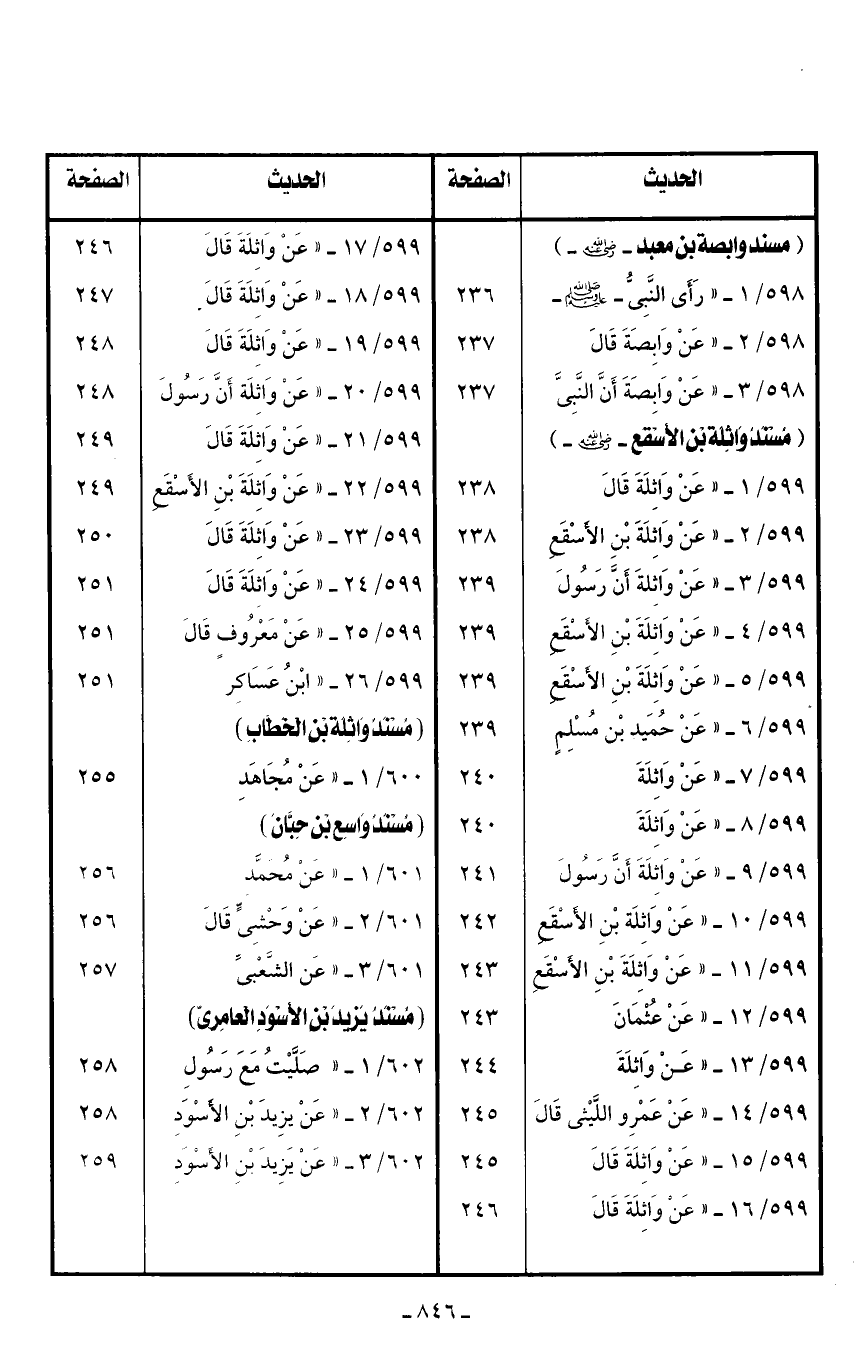 الحديث الصفحة
( مسند وابصة بن معبد ـ رضي الله عنه ـ )
٥٩٨/ ١ ـ « رَأَى النَّبِيُّ ـ ﷺ ـ ٢٣٦
٥٩٨/ ٢ ـ « عَنْ وَابِصَةَ قَالَ ٢٣٧
٥٩٨/ ٣ ـ « عَنْ وَابِصَةَ أَنَّ النَّبِىَّ ٢٣٧
( مُسْنَدُ وَاثِلَة بْن الأسْقع ـ رضي الله عنه ـ )
٥٩٩/ ١ ـ « عَنْ وَاثِلَةَ قَالَ ٢٣٨
٥٩٩/ ٢ ـ « عَنْ وَاثِلَةَ بْنِ الأَسْقَعِ ٢٣٨
٥٩٩/ ٣ ـ « عَنْ وَاثِلَةَ أَنَّ رَسُولَ ٢٣٩
٥٩٩/ ٤ ـ « عَنْ وَاثِلَةَ بْنِ الأَسْقَعِ ٢٣٩
٥٩٩/ ٥ ـ « عَنْ وَاثِلَةَ بْنِ الأَسْقَعِ ٢٣٩
٥٩٩/ ٦ ـ « عَنْ حُمَيدِ بْنِ مُسْلِمٍ ٢٣٩
٥٩٩/ ٧ ـ « عَنْ وَاثِلَةَ ٢٤٠
٥٩٩/ ٨ ـ « عَنْ وَاثِلَةَ ٢٤٠
٥٩٩/ ٩ ـ « عَنْ وَاثِلَةَ أَنَّ رَسُولَ ٢٤١
٥٩٩/ ١٠ ـ « عَنْ وَاثِلَةَ بْنِ الأَسْقَعِ ٢٤٢
٥٩٩/ ١١ ـ « عَنْ وَاثِلَةَ بْنِ الأَسْقَعِ ٢٤٣
٥٩٩/ ١٢ ـ « عَنْ عُثْمَانَ ٢٤٣
٥٩٩/ ١٣ ـ « عَـنْ وَاثِلَةَ ٢٤٤
٥٩٩/ ١٤ ـ « عَنْ عَمْرِو اللَّيْثِى قَالَ ٢٤٥
٥٩٩/ ١٥ ـ « عَنْ وَاثِلَةَ قَالَ ٢٤٥
٥٩٩/ ١٦ ـ « عَنْ وَاثِلَةَ قَالَ ٢٤٦
الحديث الصفحة
٥٩٩/ ١٧ ـ « عَنْ وَاثِلَةَ قَالَ ٢٤٦
٥٩٩/ ١٨ ـ « عَنْ وَاثِلَةَ قَالَ ٢٤٧
٥٩٩/ ١٩ ـ « عَنْ وَاثِلَةَ قَالَ ٢٤٨
٥٩٩/ ٢٠ ـ « عَنْ وَاثِلَة أَنَّ رَسُولَ ٢٤٨
٥٩٩/ ٢١ ـ « عَنْ وَاثِلَةَ قَالَ ٢٤٩
٥٩٩/ ٢٢ ـ « عَنْ وَاثِلَةَ بْنِ الأَسْقَعِ ٢٤٩
٥٩٩/ ٢٣ ـ « عَنْ وَاثِلَةَ قَالَ ٢٥٠
٥٩٩/ ٢٤ ـ « عَنْ وَاثِلَةَ قَالَ ٢٥١
٥٩٩/ ٢٥ ـ « عَنْ مَعْرُوفٍ قَالَ ٢٥١
٥٩٩/ ٢٦ ـ « ابْنُ عَسَاكِر ٢٥١
( مُسْنَدُ وَاثِلَة بْن الخَطَّاب )
٦٠٠/ ١ ـ « عَنْ مُجَاهَدِ ٢٥٥
( مُسْنَدُ وَاسِع بْن حِبَّان )
٦٠١/ ١ ـ « عَنْ مُحَمَّد ٢٥٦
٦٠١/ ٢ ـ « عَنْ وَحْشِىٍّ قَالَ ٢٥٦
٦٠١/ ٣ ـ « عَنِ الشَّعْبِىِّ ٢٥٧
( مُسْنَدُ يَزِيد بْن الأَسْوَدِ العامِرِىّ )
٦٠٢/ ١ ـ « صَلَّيْتُ مَعَ رَسُولِ ٢٥٨
٦٠٢/ ٢ ـ « عَنْ يزِيدَ بْنِ الأَسْوَدِ ٢٥٨
٦٠٢/ ٣ ـ « عَنْ يَزِيدَ بْنِ الأَسْوَدِ ٢٥٩
ـ ٨٤٦ ـ